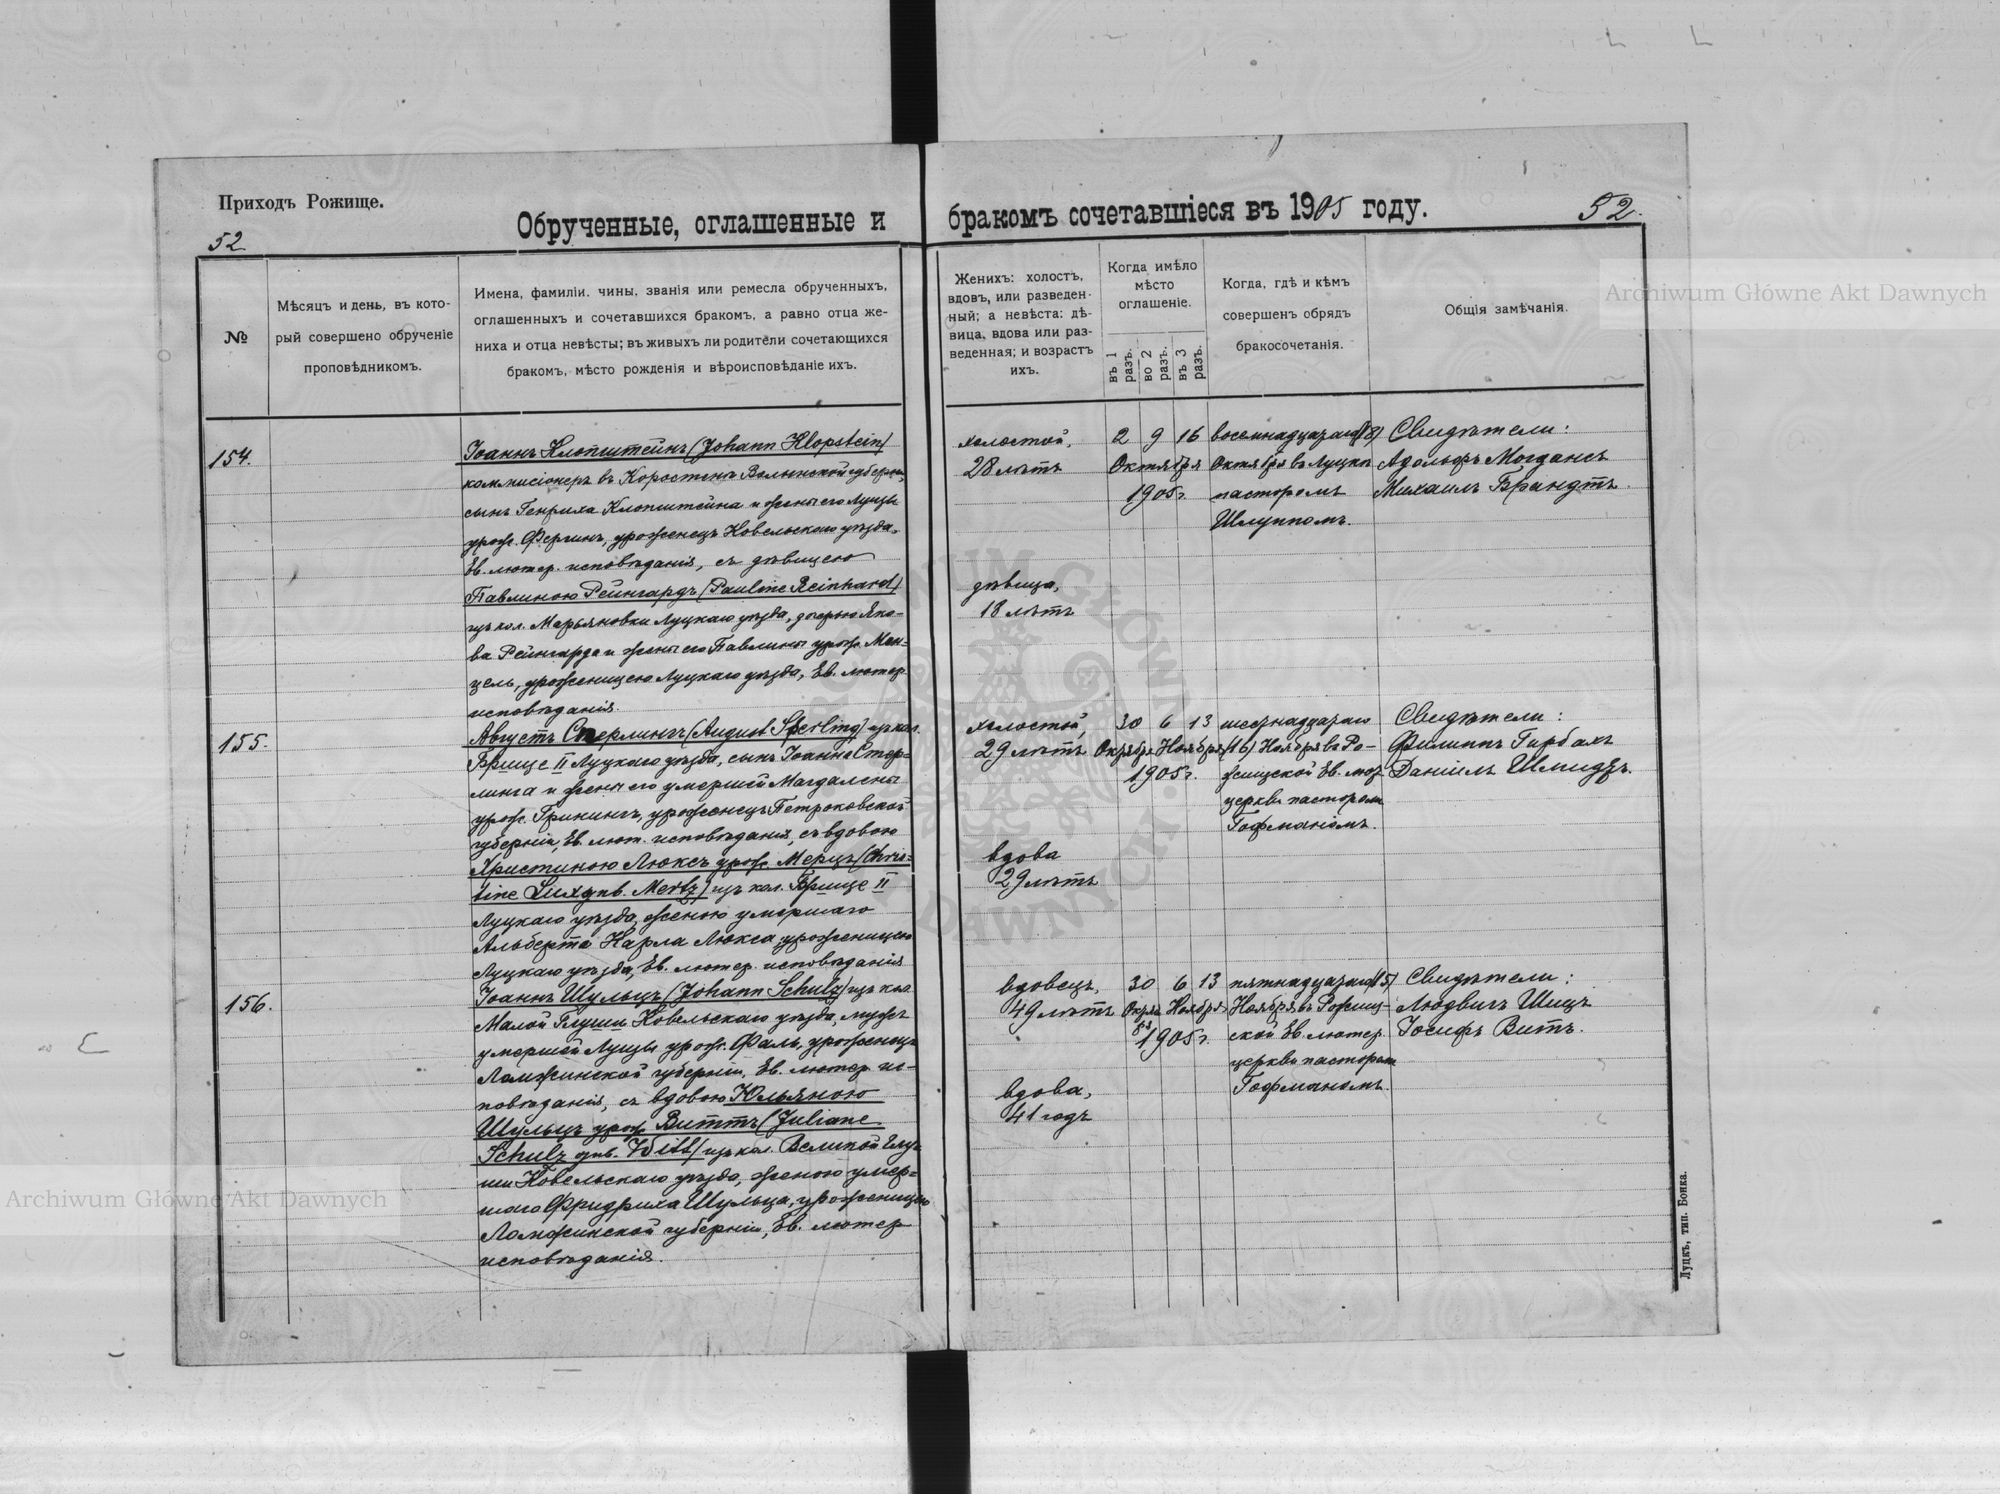 Приходъ Рожище.
52
Обрученные, оглашенные и
бракомъ сочетавшіеся въ 1905 году.
52.
№
Мѣсяцъ и день, въ кото-
рый совершено обрученіе
проповѣдникомъ.
Имена, фамиліи. чины, званія или ремесла обрученныхъ,
оглашенныхъ и сочетавшихся бракомъ, а равно отца же-
ниха и отца невѣсты; въ живыхъ ли родители сочетающихся
бракомъ, мѣсто рожденія и вѣроисповѣданіе ихъ.
Женихъ: холостъ,
вдовъ, или разведен-
ный; а невѣста: дѣ-
вица, вдова или раз-
веденная; и возрастъ
ихъ.
Когда имѣло
мѣсто
оглашеніе.
въ 1 разъ.
во 2 разъ.
въ 3 разъ.
Когда, гдѣ и кѣмъ
совершенъ обрядъ
бракосочетанія.
Общія замѣчанія.
154.
Іоаннъ Клопштейнъ (Johann Klopstein)
коммисіонеръ въ Коростенѣ Волынской губерніи,
сынъ Генриха Клопштейна и жены его Луизы
урож. Фергинъ, уроженецъ Ковельскаго уѣзда,
Ев. лютер. исповѣданія, съ дѣвицею
Павлиною Рейнгардъ (Pauline Reinhard)
изъ кол. Марьяновки Луцкаго уѣзда, дочерью Яко-
ва Рейнгарда и жены его Павлины урож. Мен-
цель, уроженицею Луцкаго уѣзда, Ев. лютер.
исповѣданія.
холостой,
28 лѣтъ
дѣвица,
18 лѣтъ
2 9 16
Октября
1905 г.
восемнадцатаго (18)
Октября въ Луцкѣ
пасторомъ
Шлуппомъ.
Свидѣтели:
Адольфъ Могдансъ
Михаилъ Брандтъ.
155.
Августъ Сперлингъ (August Sperling) изъ кол.
Брище II Луцкаго уѣзда, сынъ Іоанна Спер-
линга и жены его умершей Магдалены
урож. Грикингъ, уроженецъ Петроковской
губерніи, Ев. лют. исповѣданія, съ вдовою
Христиною Люксъ урож. Мерцъ (Chris-
tine Lux geb. Mertz) изъ кол. Брище II
Луцкаго уѣзда, женою умершаго
Альберта Карла Люкса, уроженицею
Луцкаго уѣзда, Ев. лютер. исповѣданія
холостой,
29 лѣтъ
вдова
29 лѣтъ
30 6 13
Октября Ноября
1905 г.
шестнадцатаго
(16) Ноября въ Ро-
жищской Ев. лют.
церкви пасторомъ
Гофманомъ.
Свидѣтели:
Филиппъ Гирбахъ
Даніилъ Шмидтъ.
156.
Іоаннъ Шульцъ (Johann Schulz) изъ кол.
Малой Глуши Ковельскаго уѣзда, мужъ
умершей Луизы урож. Фаль, уроженецъ
Ломжинской губерніи, Ев. лютер. ис-
повѣданія, съ вдовою Юльяною
Шульцъ урож. Виттъ (Juliane
Schulz geb. Witt) изъ кол. Великой Глу-
ши Ковельскаго уѣзда, женою умер-
шаго Фридриха Шульца, уроженицею
Ломжинской губерніи, Ев. лютер.
исповѣданія.
вдовецъ,
49 лѣтъ
вдова,
41 годъ
30 6 13
Октября Ноября
1905 г.
пятнадцатаго (15)
Ноября въ Рожищ-
ской Ев. лютер.
церкви пасторомъ
Гофманомъ.
Свидѣтели:
Людвигъ Шицъ
Іосифъ Витъ.
Луцкъ, тип. Бонка.
Archiwum Główne Akt Dawnych
Archiwum Główne Akt Dawnych